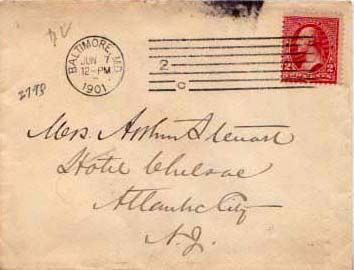 BALTIMORE, MD.
JUN 7
12-PM
1901
2
C
2 2
2798
Mrs Arthur Stewart
Hotel Chelsae
Atlantic City
N.J.